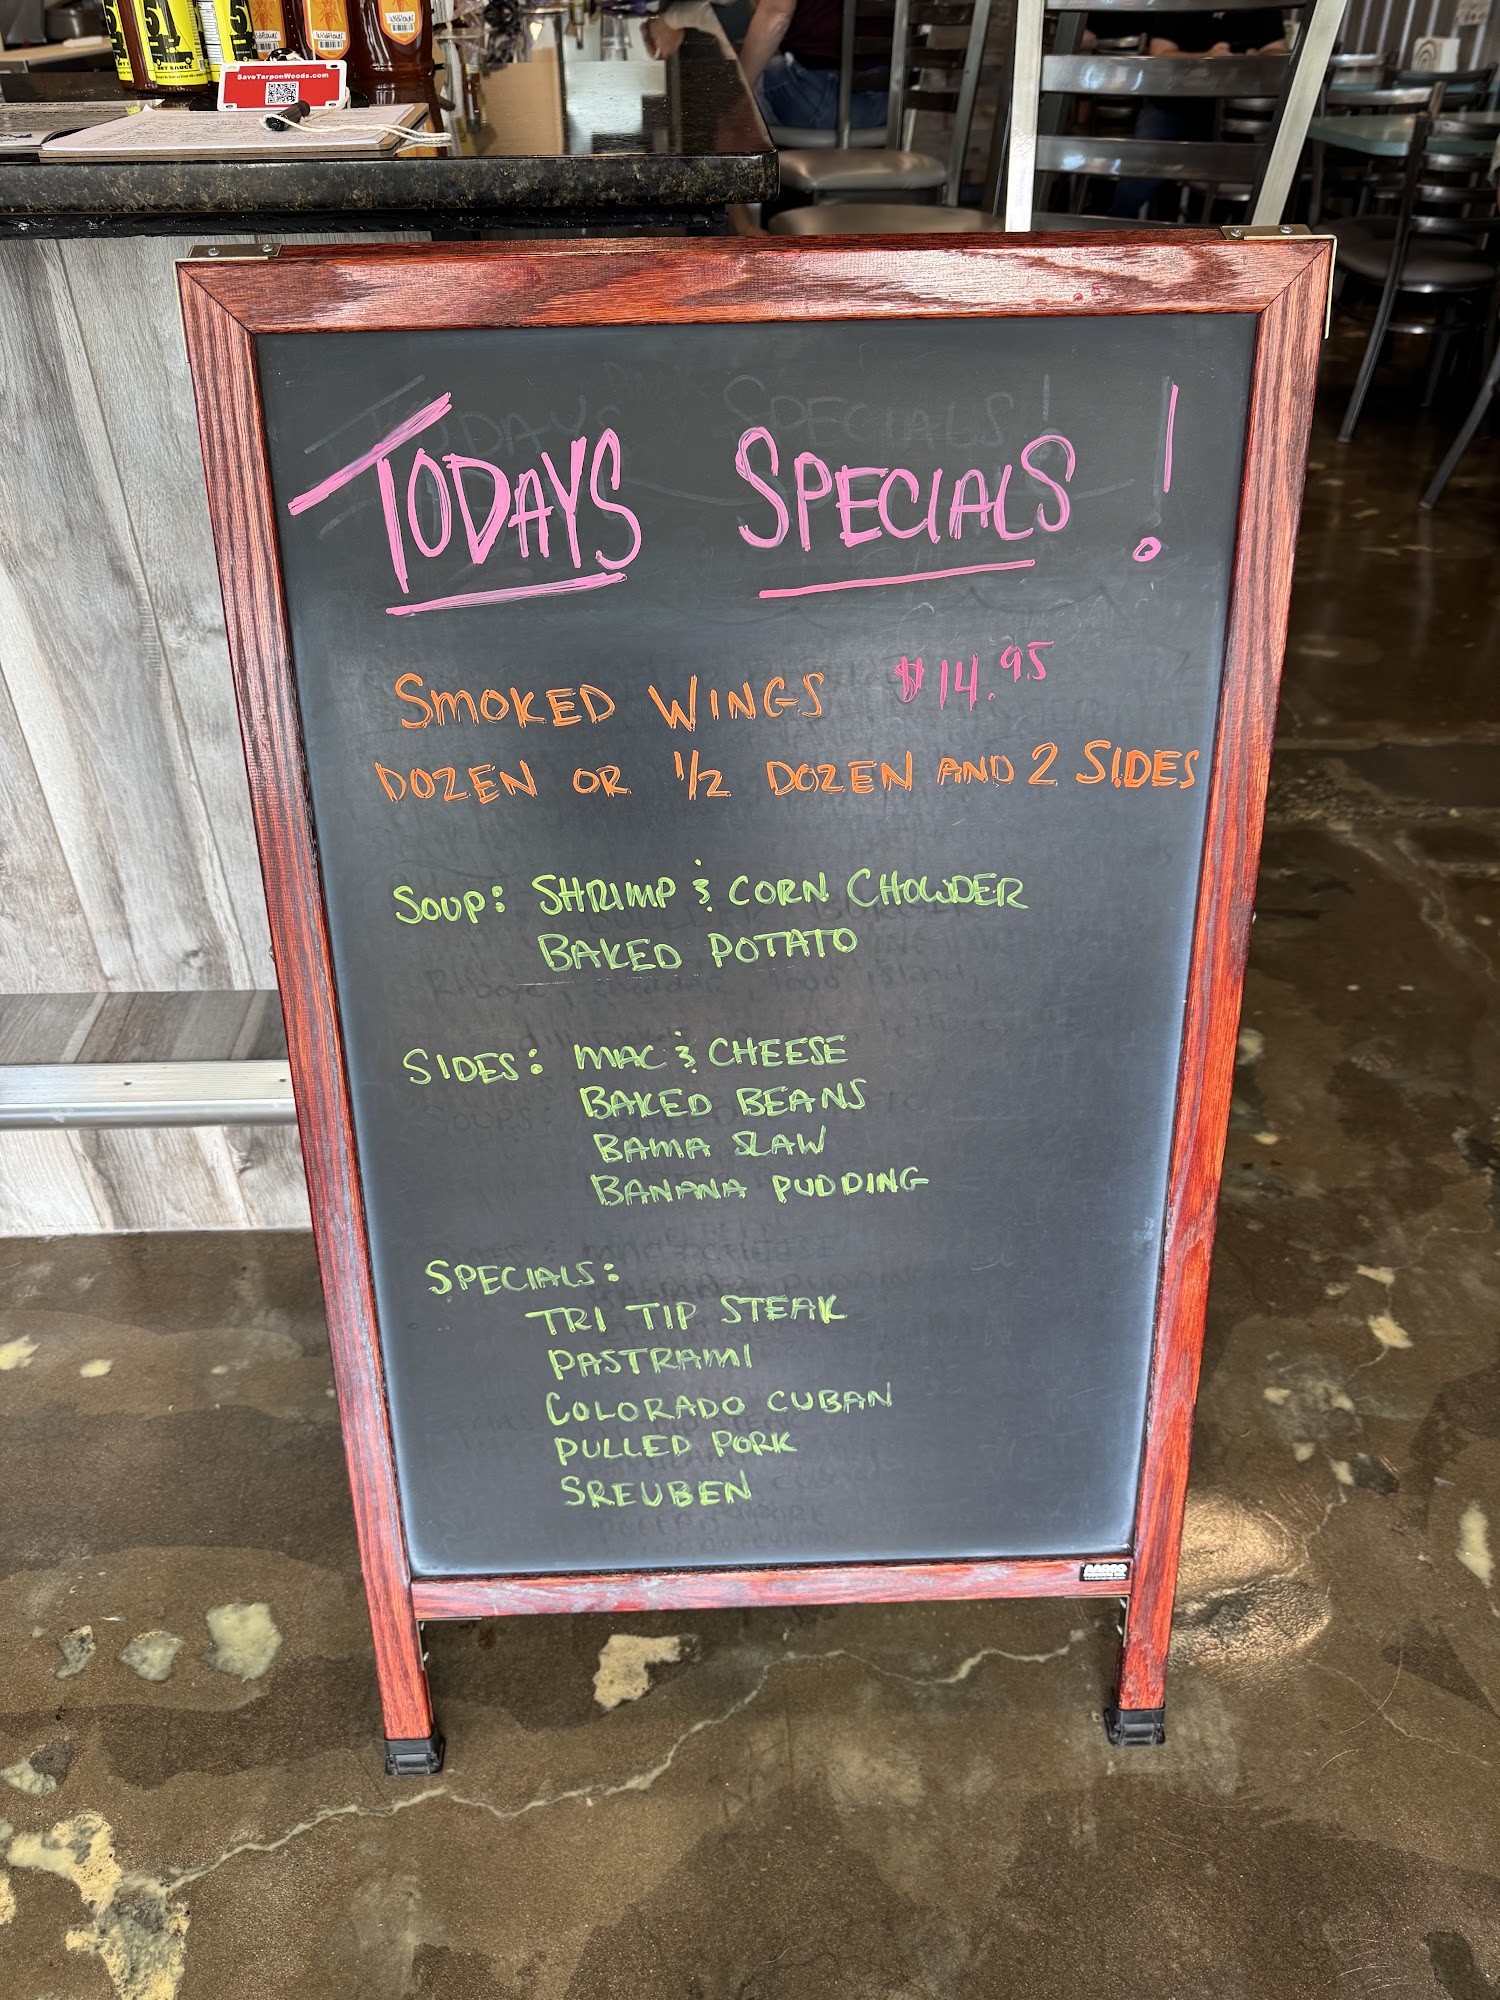 SaveTarponWoods.com
HOT SAUCE
TODAYS SPECIALS!
SMOKED WINGS $14.95
DOZEN OR 1/2 DOZEN AND 2 SIDES
SOUP: SHRIMP & CORN CHOWDER
BAKED POTATO
SIDES: MAC & CHEESE
BAKED BEANS
BAMA SLAW
BANANA PUDDING
SPECIALS:
TRI TIP STEAK
PASTRAMI
COLORADO CUBAN
PULLED PORK
SREUBEN